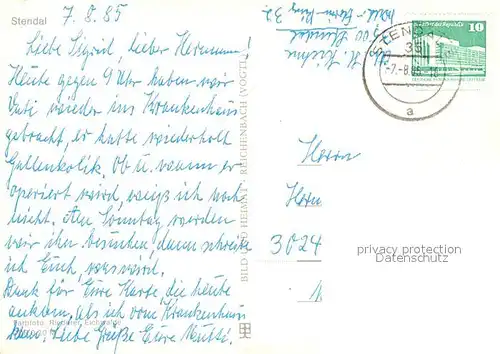 Stendal
7.8.85
Liebe Sigrid, lieber Hermann!
Heute gegen 9 Uhr haben wir
Vati wieder ins Krankenhaus
gebracht, er hatte wiederholt
Gallenkolik. Ob u. wann er
operiert wird, weiß ich noch
nicht. Am Sonntag werden
wir ihn besuchen, dann schreibe
ich Euch, was wird.
Dank für Eure Karte die heute
ankam, als ich vom Krankenhaus
kam. Liebe Grüße Eure Mutti.
BILD UND HEIMAT · REICHENBACH (VOGTL)
STENDAL
35
-7.-8.85
a
10
Herrn
Herm
3024
privacy protection
Datenschutz